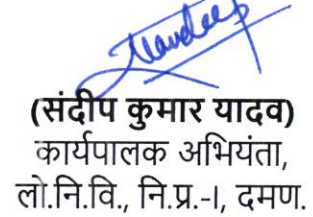 (संदीप कुमार यादव)
कार्यपालक अभियंता,
लो.नि.वि., नि.प्र.-I, दमण.